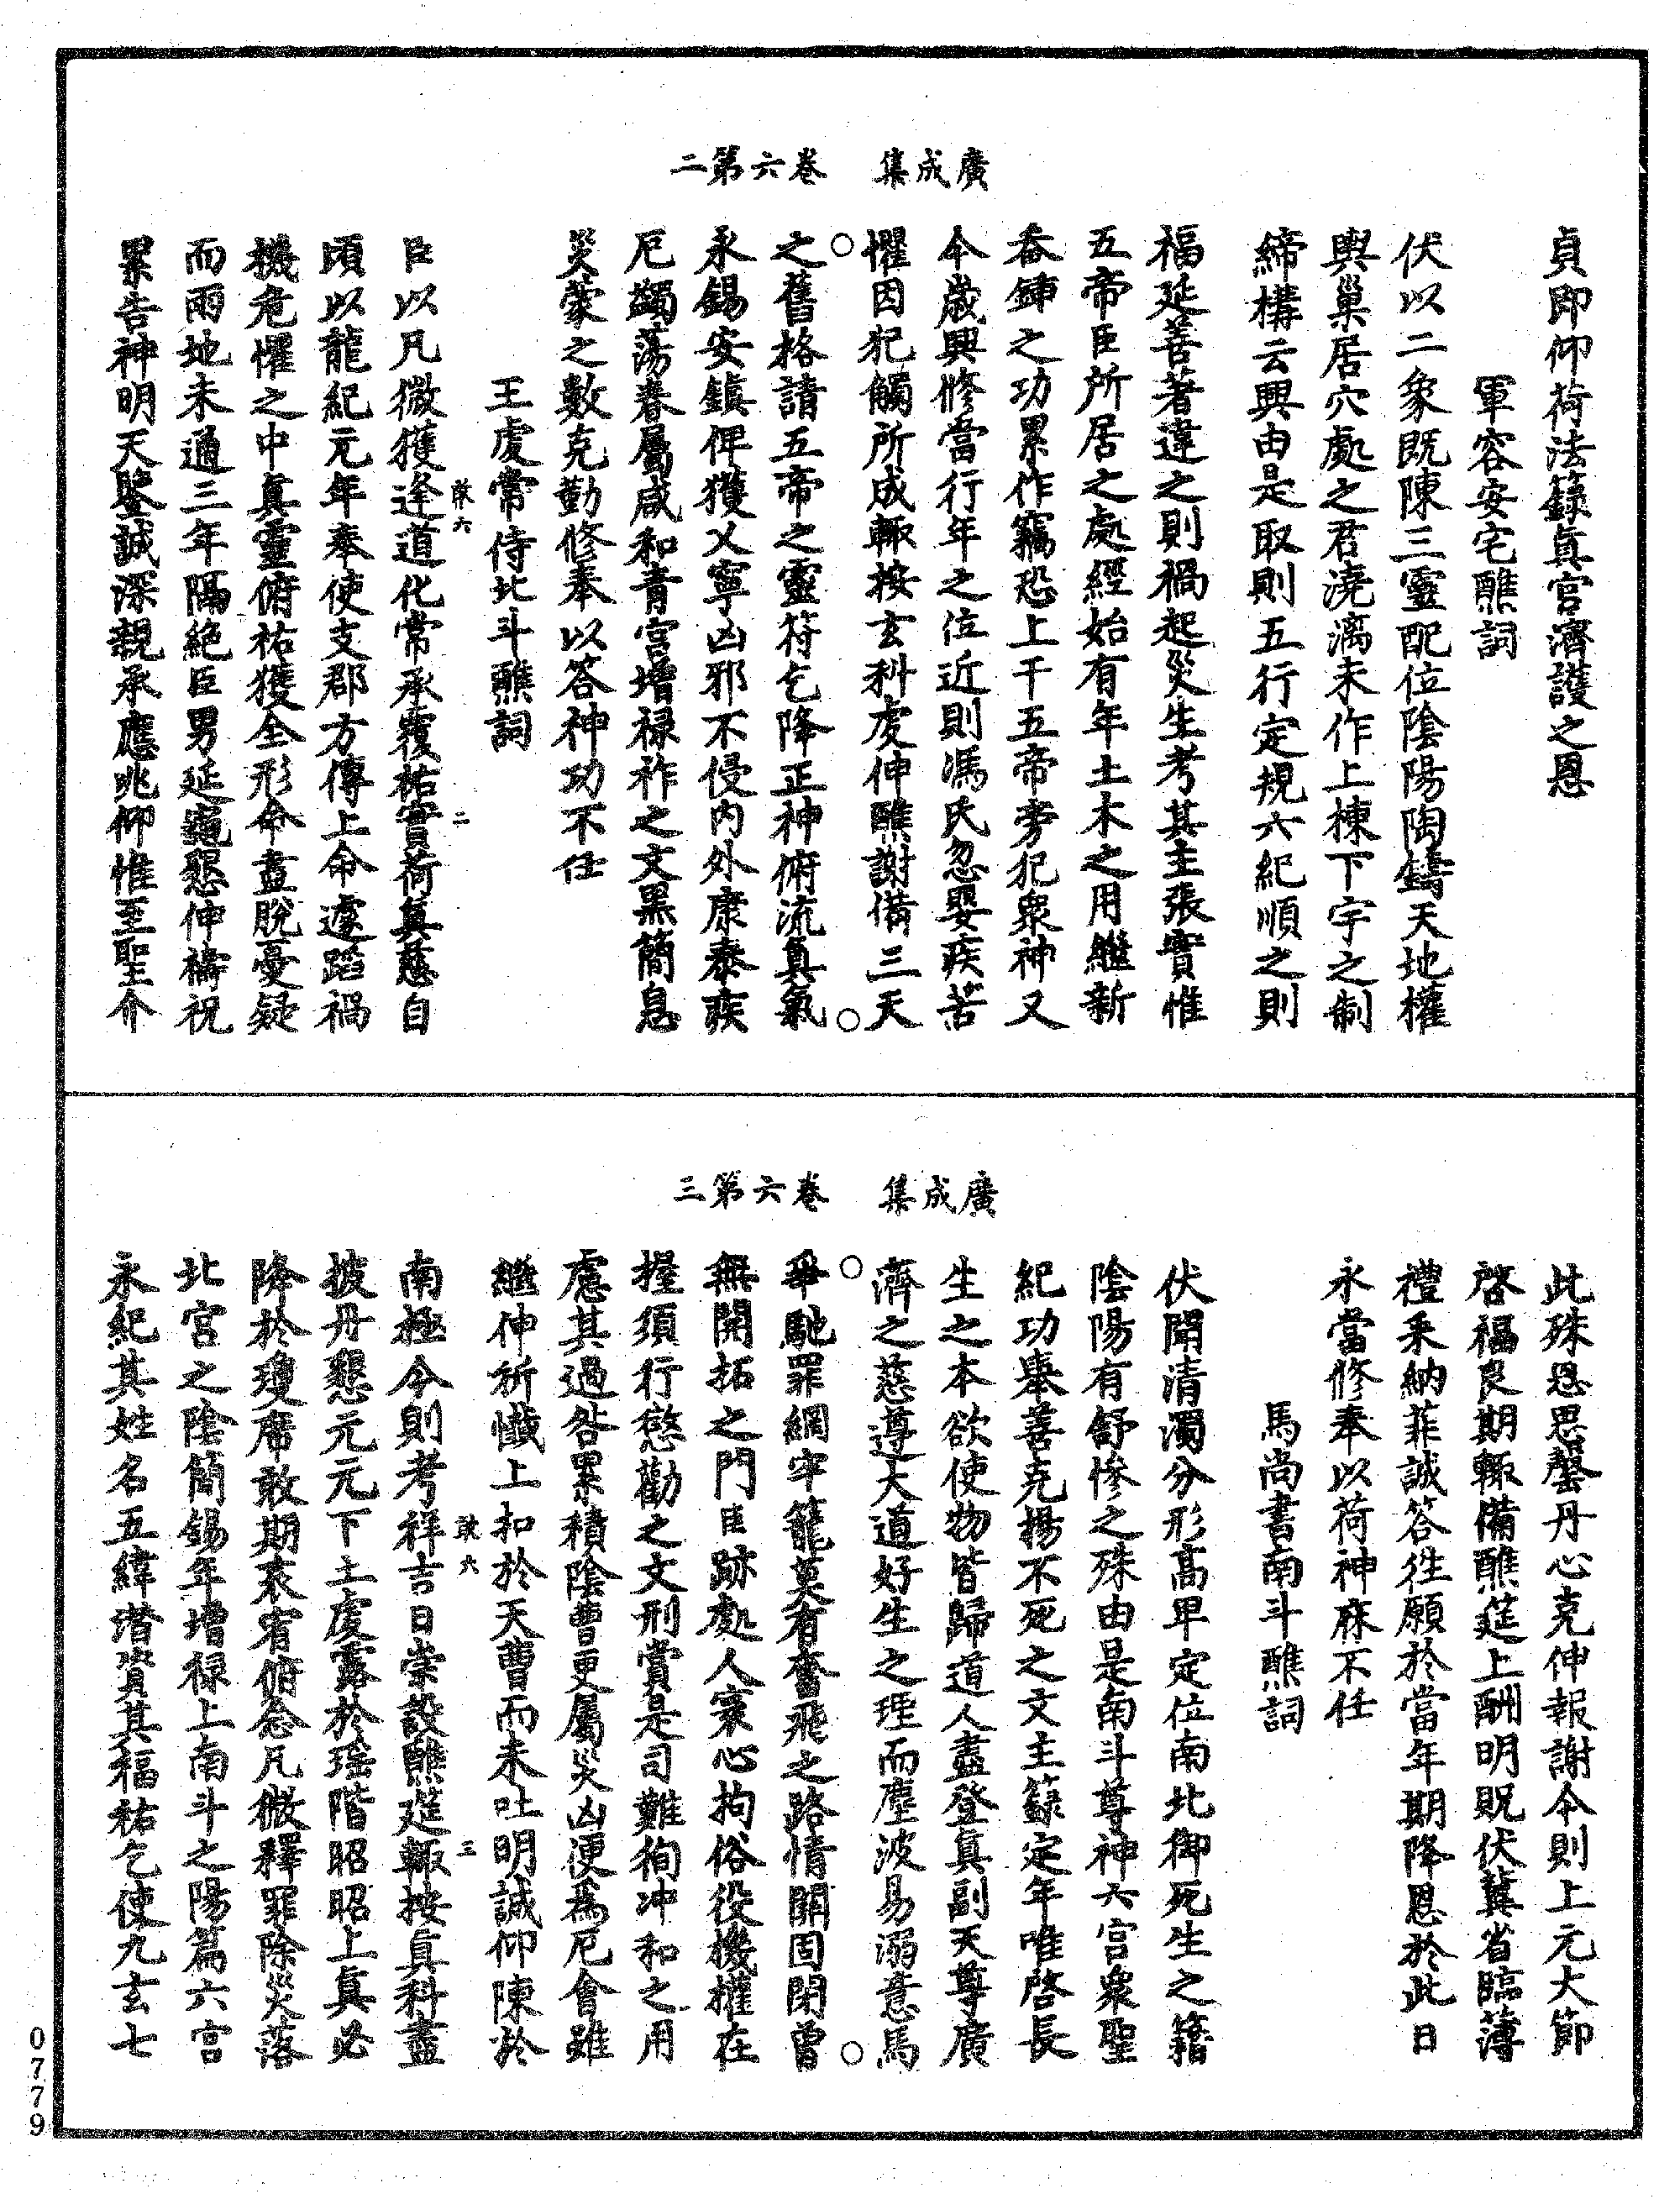 廣成集　卷六第二
貞即仰荷法籙真官濟護之恩
軍容安宅醮詞
伏以二象既陳三靈配位陰陽陶鑄天地權
輿巢居穴處之君澆漓未作上棟下宇之制
締構云興由是取則五行定規六紀順之則
福延善著違之則禍起災生考其主張實惟
五帝臣所居之處經始有年土木之用繼新
畚鍤之功累作竊恐上干五帝旁犯衆神又
今歲興修當行年之位近則馮氏忽嬰疾苦
懼因犯觸所成輙按玄科虔伸醮謝備三天
之舊格請五帝之靈符乞降正神俯流真氣
永錫安鎮俾獲乂寧凶邪不侵内外康泰疾
厄蠲蕩眷屬咸和青宫增禄祚之文黑簡息
災蒙之數克勤修奉以答神功不任
王虔常侍北斗醮詞
臣以凡微獲逢道化常承覆祐實荷真慈自
頃以龍紀元年奉使支郡方傳上命遽蹈禍
機危懼之中真靈俯祐獲全形命盡脱憂疑
而雨地未通三年隔絶臣男延龜懇伸禱祝
累告神明天鑒誠深親承應兆仰惟至聖介
敢六
二
廣成集　卷六第三
此殊恩思罄丹心克伸報謝今則上元大節
啓福良期輙備醮筵上酬明貺伏冀省臨薄
禮釆納菲誠答徃願於當年期降恩於此日
永當修奉以荷神庥不任
馬尚書南斗醮詞
伏聞清濁分形高卑定位南北御死生之籍
陰陽有舒慘之殊由是南斗尊神六宫衆聖
紀功舉善克揚不死之文主籙定年唯啓長
生之本欲使物皆歸道人盡登真副天尊廣
濟之慈遵大道好生之理而塵波易溺意馬
爭馳罪網牢籠莫有奮飛之路情關固閉曾
無開拓之門臣跡處人寰心拘俗役機權在
握須行懲勸之文刑賞是司難徇沖和之用
慮其過咎累積陰曹更屬災凶便爲厄會雖
繼伸祈懺上扣於天曹而未吐明誠仰陳於
南極今則考祥吉日崇設醮筵輙按真科盡
披丹懇元元下土虔露於瑶階昭昭上真必
降於瓊席敢期衷宥俯念凡微釋罪除災落
北宫之陰簡錫年增禄上南斗之陽篇六宫
永紀其姓名五緯潜資其福祐乞使九玄七
敢六
三
0779